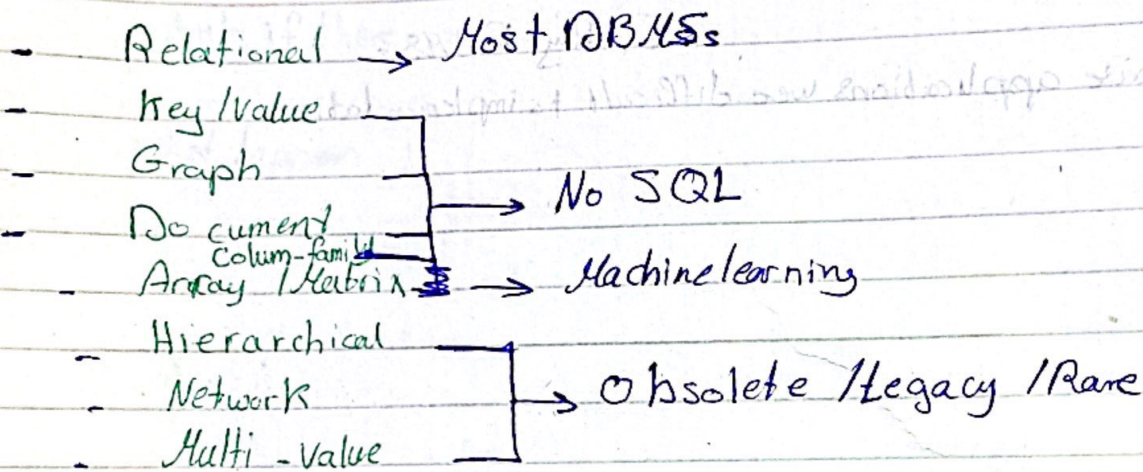 - Relational → Most DBMSs
- Key/Value
- Graph
→ No SQL
- Document
Colum-family
- Array /Matrix → Machine learning
- Hierarchical
- Network → Obsolete /Legacy /Rare
- Multi-value